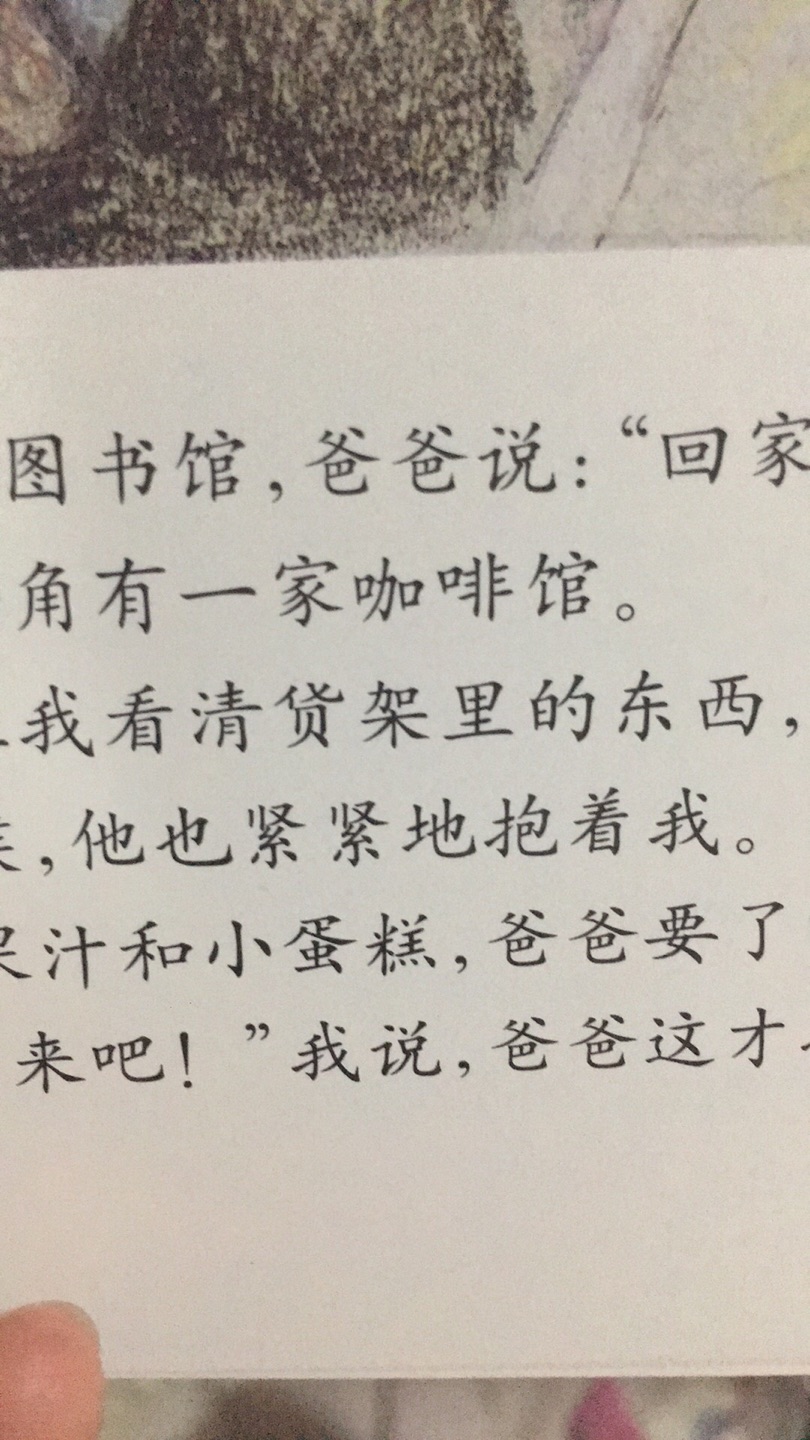 图书馆，爸爸说：“回家
角有一家咖啡馆。
我看清货架里的东西，
，他也紧紧地抱着我。
汁和小蛋糕，爸爸要了
来吧！”我说，爸爸这才